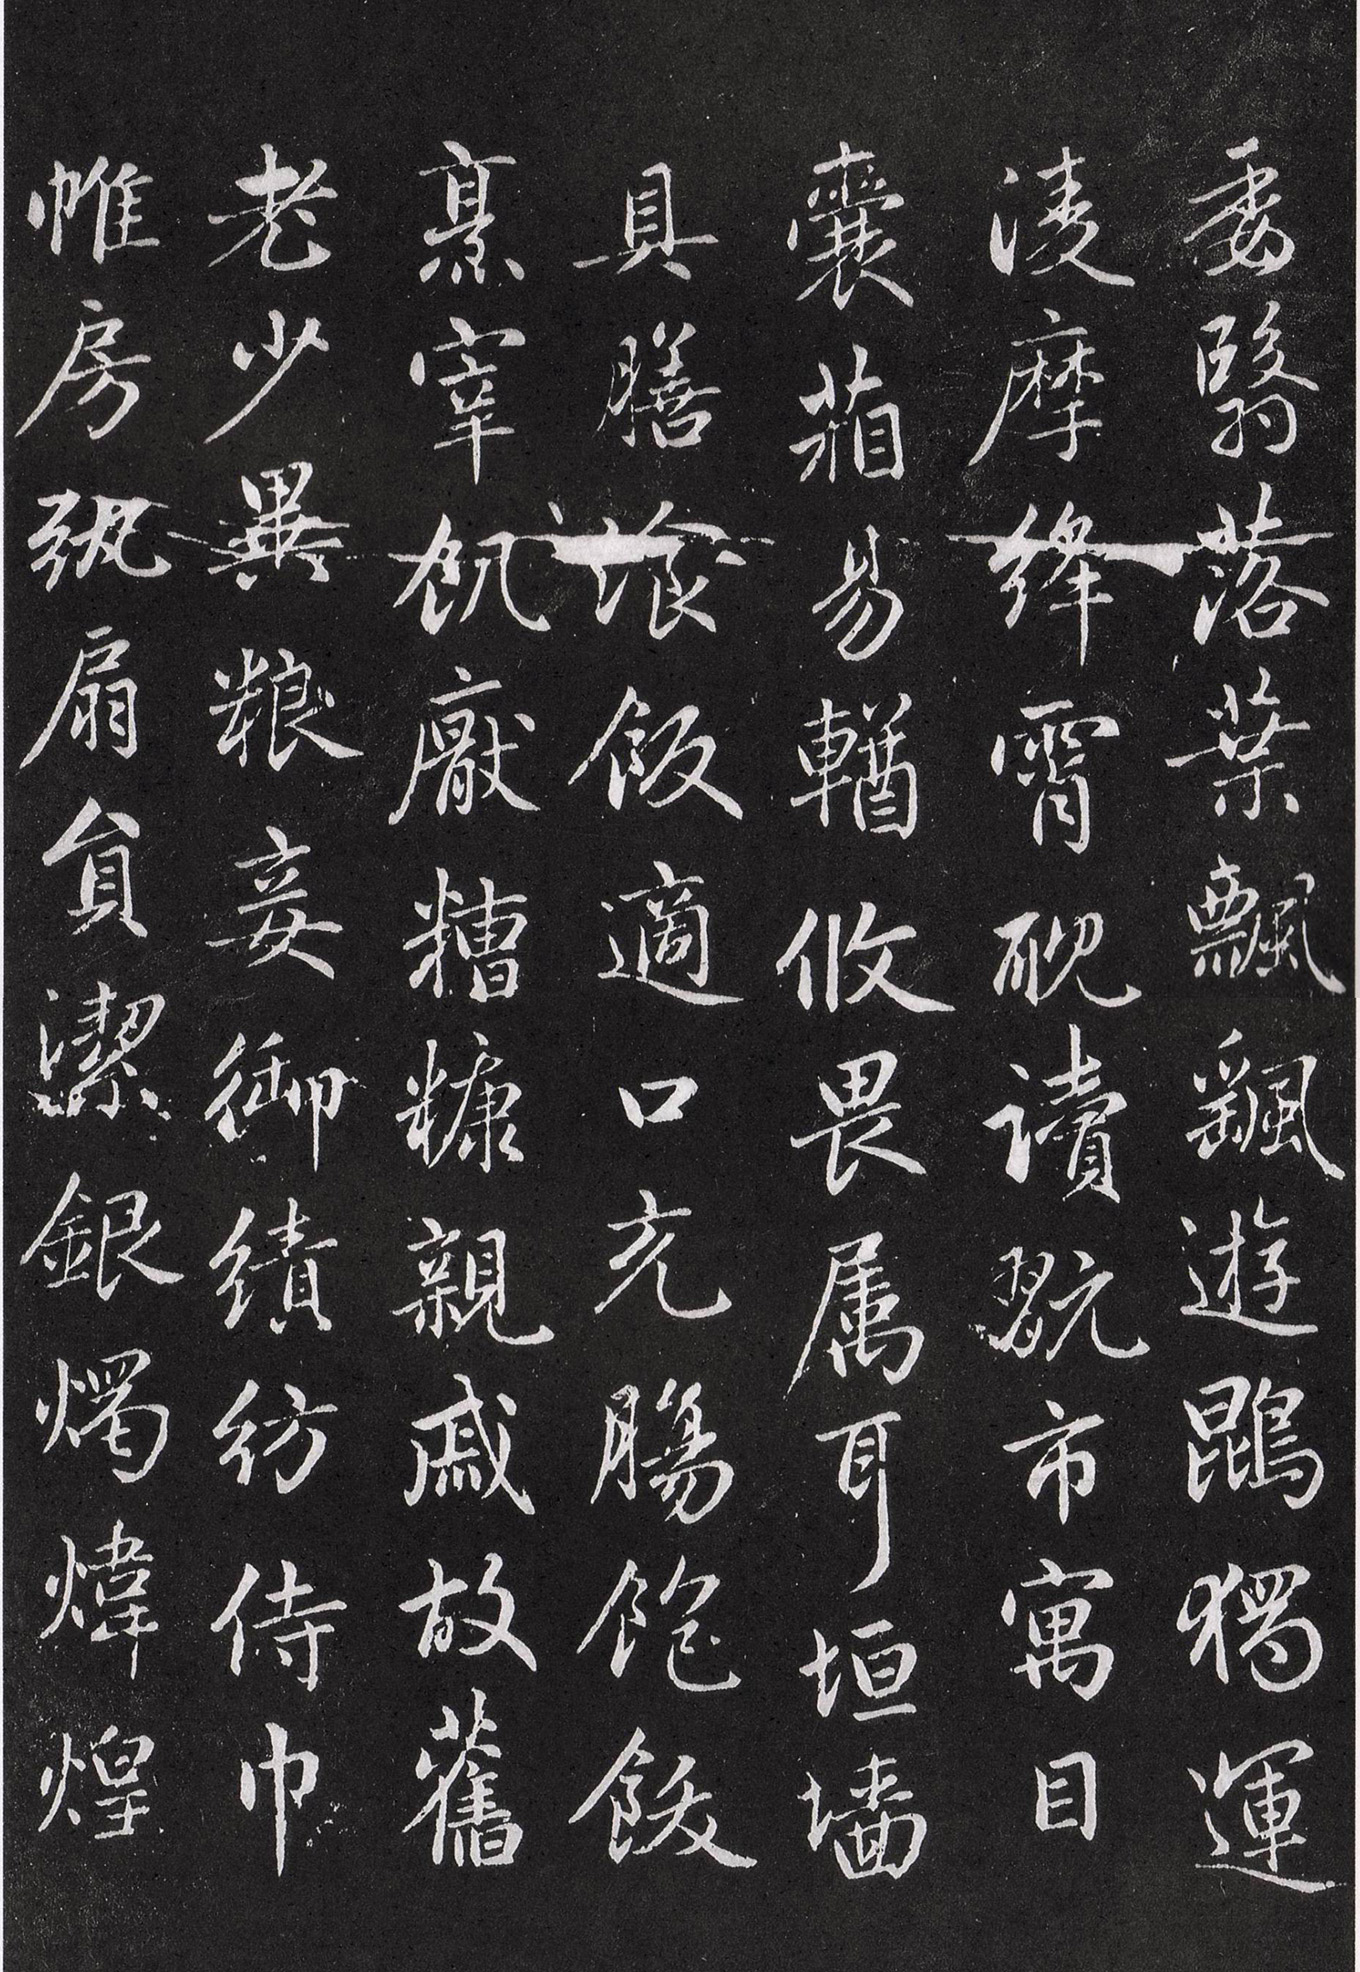 委翳落葉飄颻遊鵾獨運
淩摩絳霄耽讀翫市寓目
囊葙易輶攸畏属耳垣墻
具膳飡飯適口充腸飽飫
烹宰飢厭糟糠親戚故舊
老少異粮妾御績紡侍巾
帷房紈扇貟潔銀燭煒煌